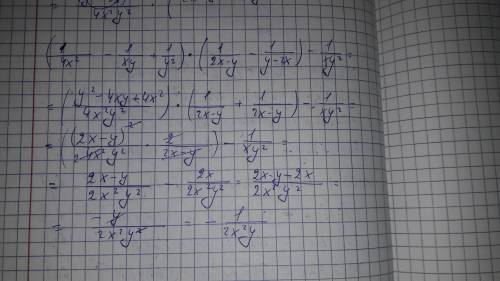 4x²y²
(1/4x² - 1/xy + 1/y²) · (1/2x-y - 1/y-2x) - 1/xy² =
= (y² - 4xy + 4x²/4x²y²) · (1/2x-y + 1/2x-y) - 1/xy² =
= ((2x-y)²/2 4x²y² · 2/2x-y) - 1/xy² =
= 2x-y/2x²y² - 2x/2x²y² = 2x-y-2x/2x²y² =
= -y/2x²y² = - 1/2x²y